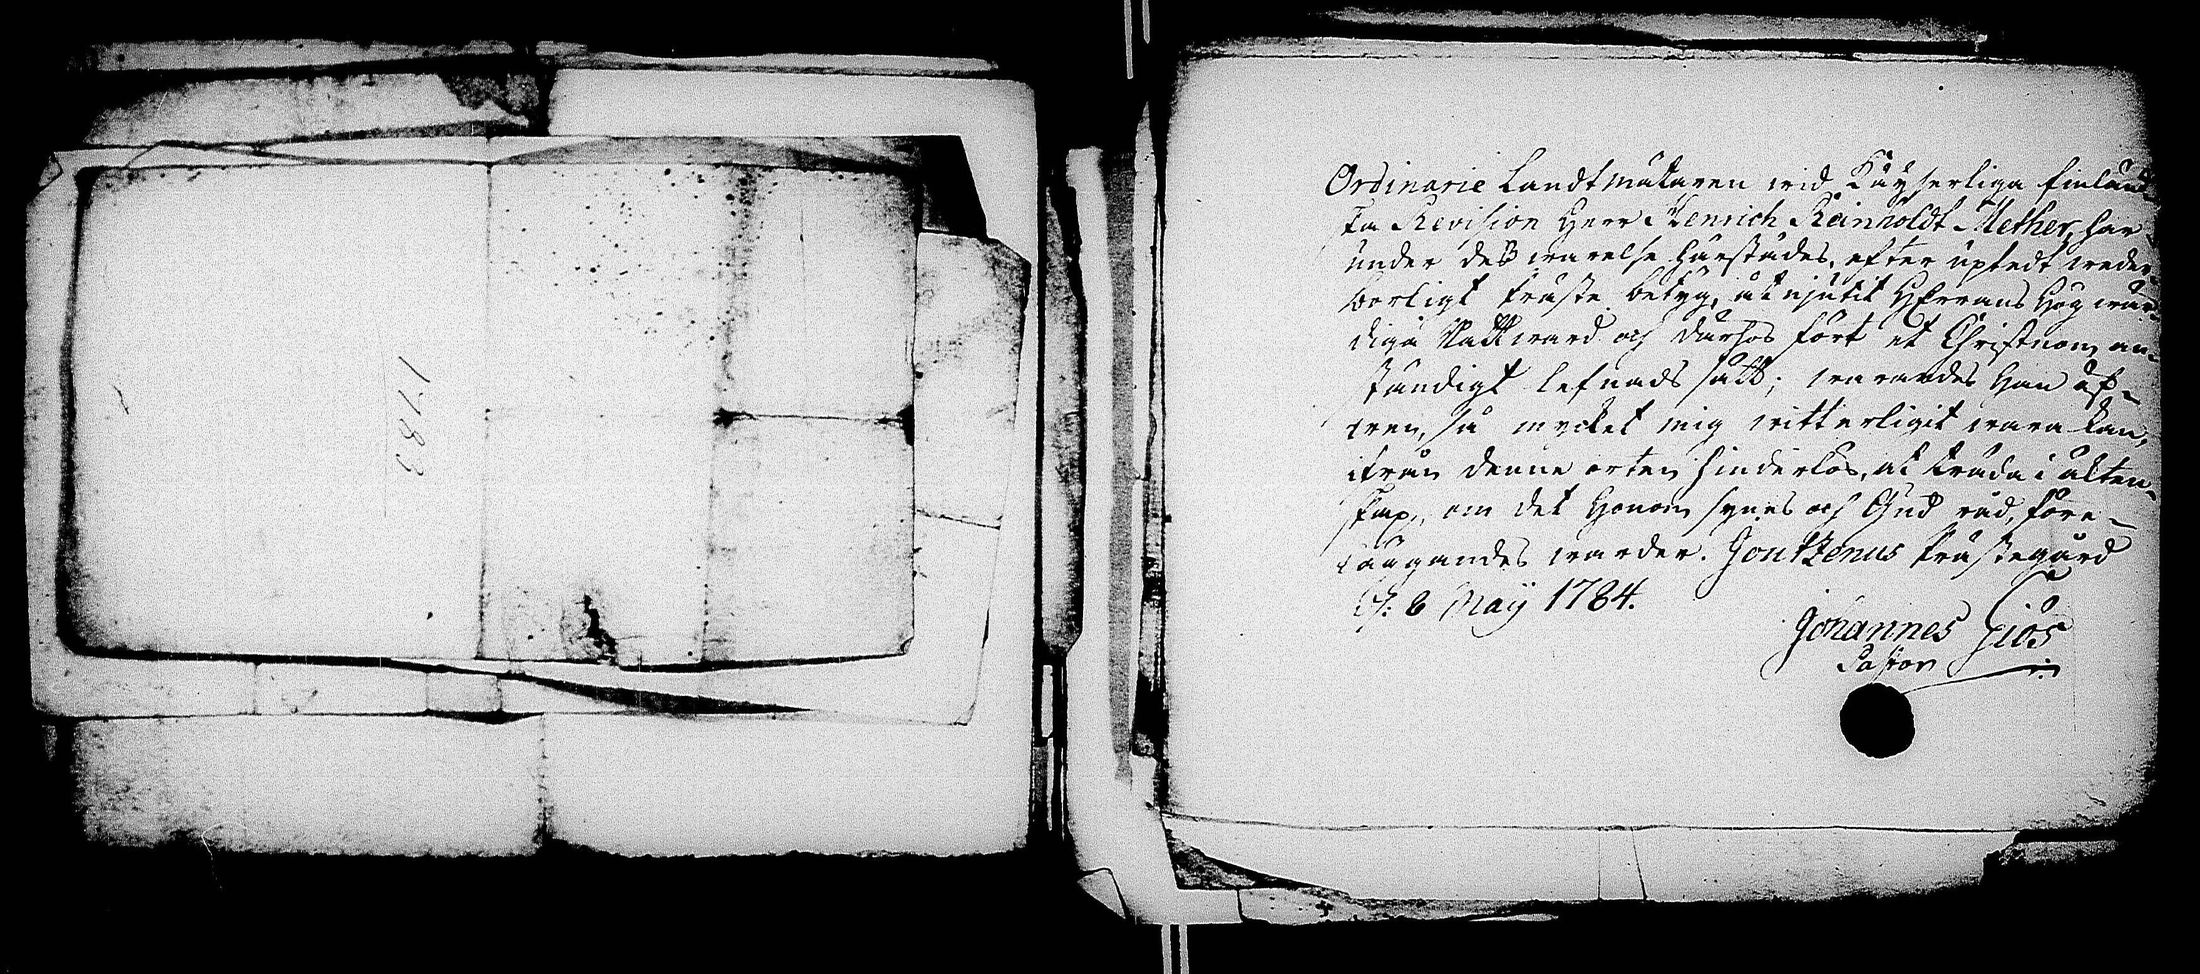 1783
Ordinarie Landtmätaren wid Käyserliga finländ-
ska Revision Herr Henrich Reinholdt Mether, har
under des warelse härstädes, efter uptedt weder-
börligt präste betyg, åtnjutit HErrans Hög wär-
diga Nattward och därhos fört et Christnom an-
ständigt lefnads sätt; warandes han äf-
wen, så mycket mig witterligit wara kan,
ifrån denne orten hinderlös, at träda i ächten-
skap, om det honom synes och Gud råd, före-
läggandes warder. Joutzenus Prästegård
d: 8 Maij 1784.
Johannes
Pastor